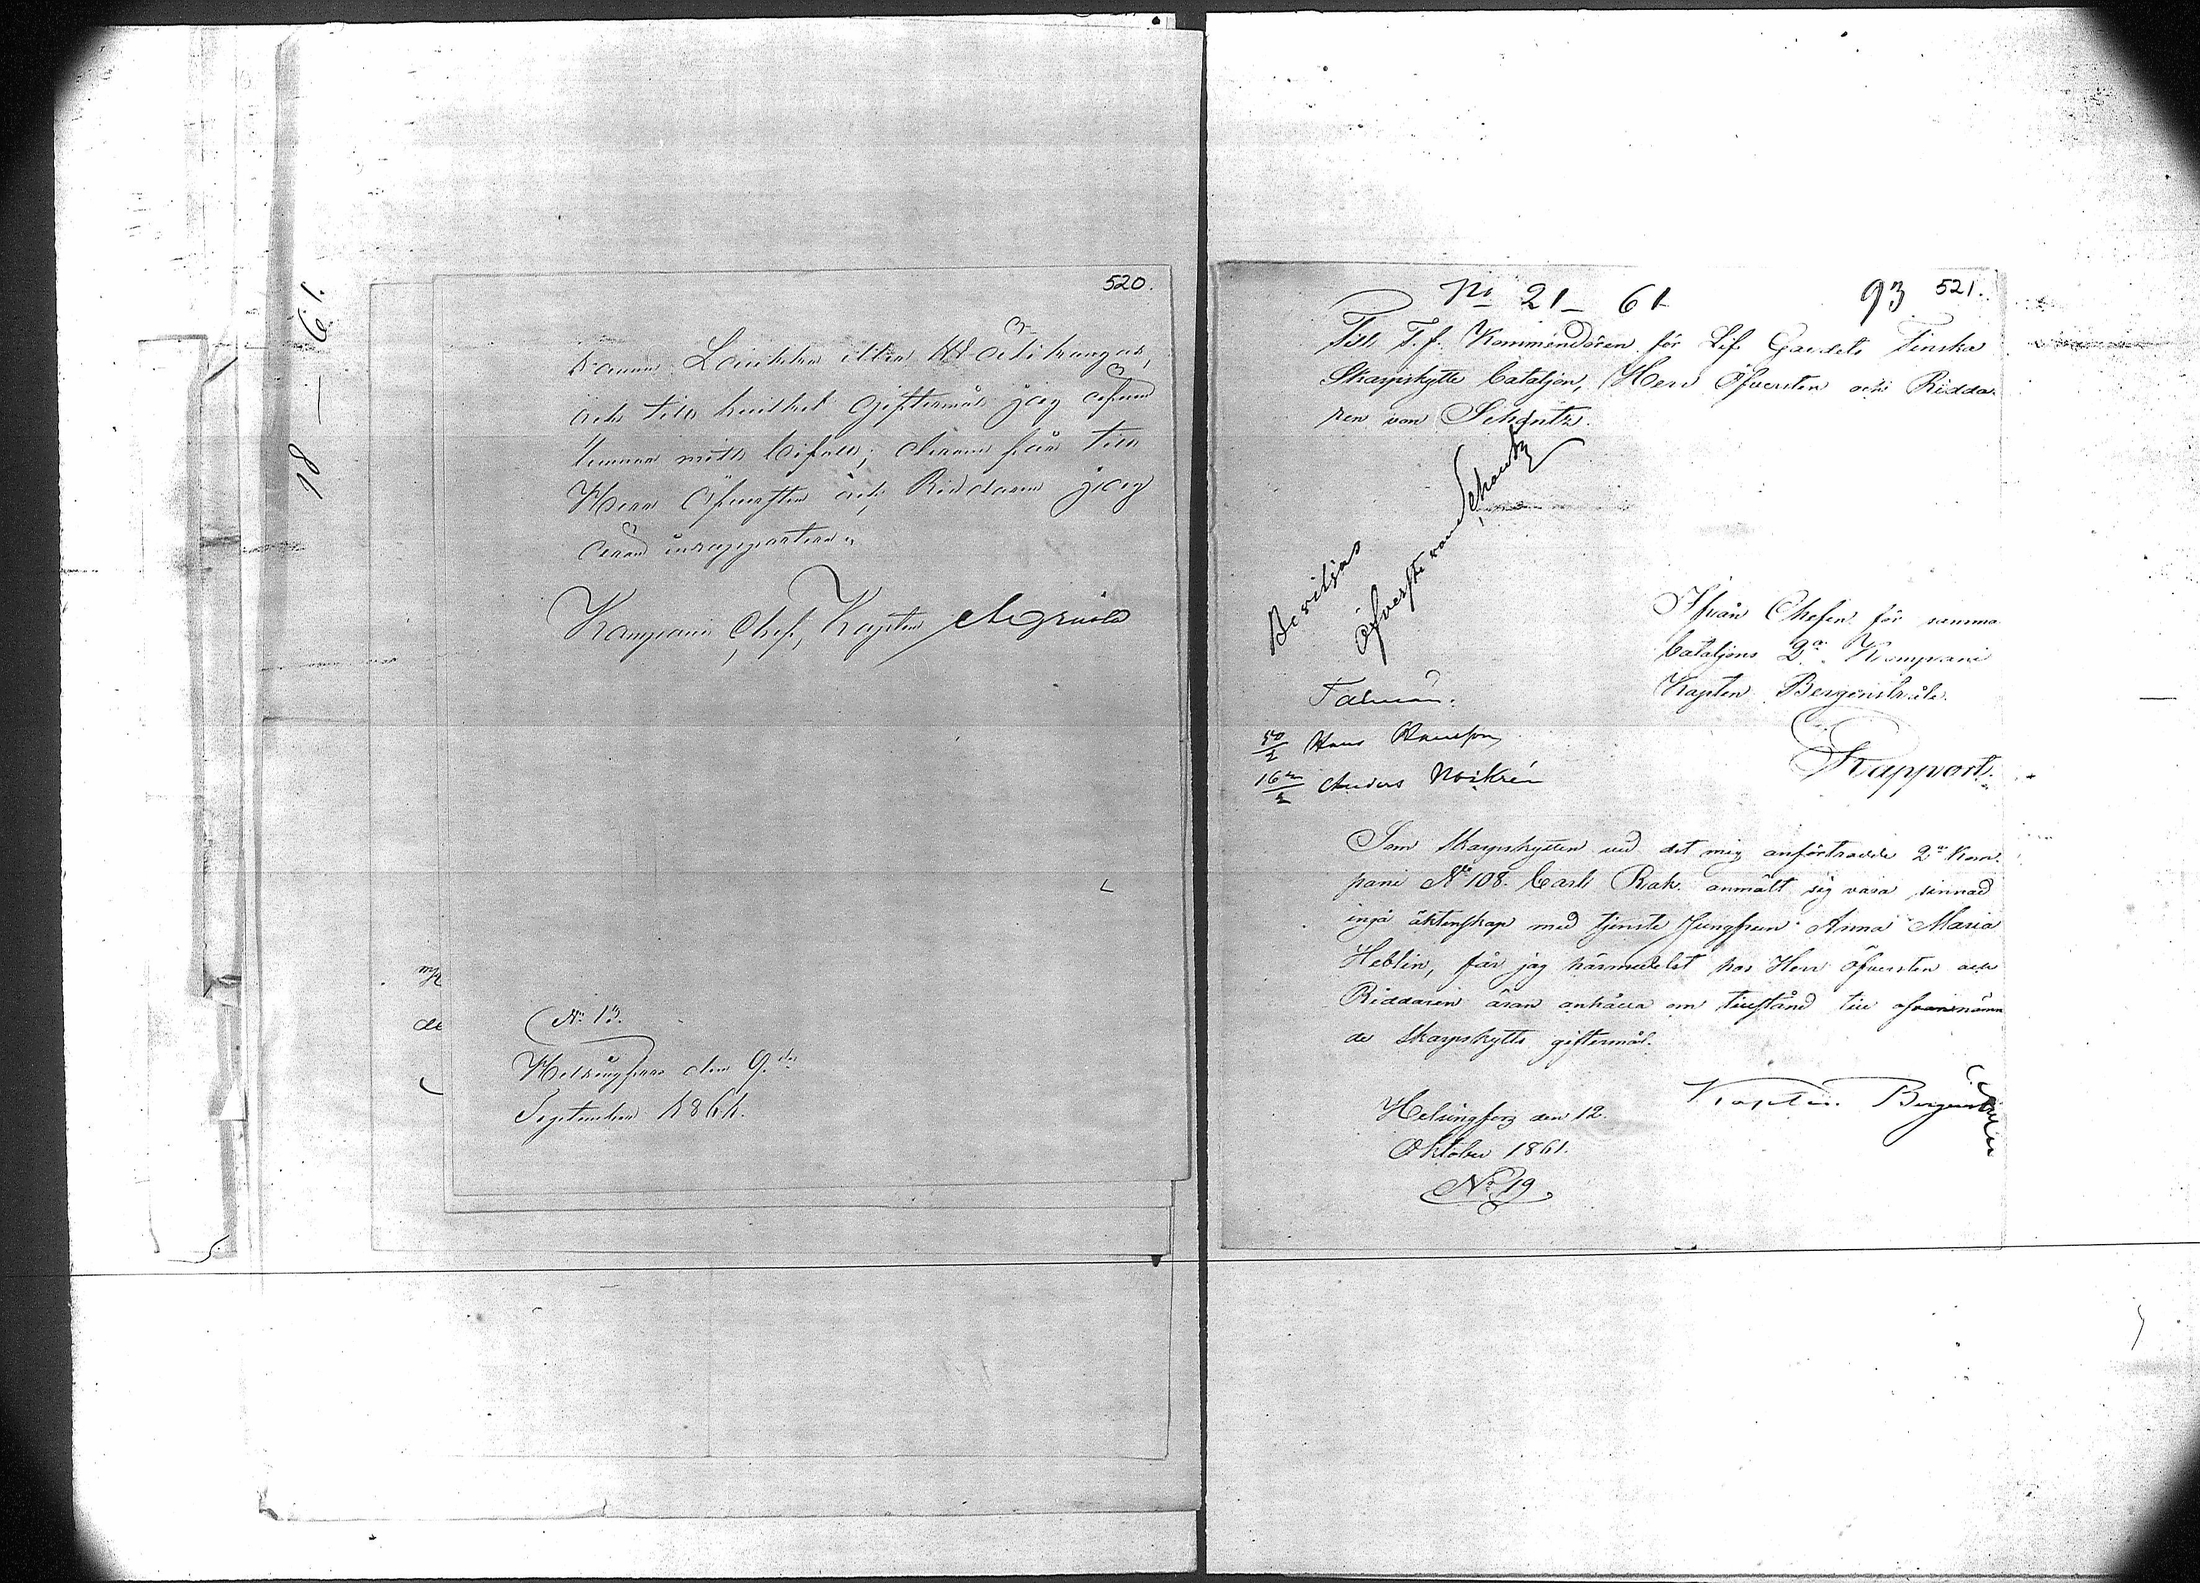 18 — 61.
520.
och till hvilket giftermål jag äfven
lemnar mitt bifall; derom får till
Herr Öfversten och Riddaren jag
äran inrapportera.
Kompani Chef, Kapten
No 13.
Helsingfors den 9.de
September 1861.
No 21 — 61
93 521.
Till T.f. Kommendören för Lif Gardets Finska
Skarpskytte bataljon, Herr Öfversten och Ridda-
ren von Schantz.
Beviljas
Öfverste von Schantz
Ifrån Chefen för samma
bataljons 2a Kompani
Kapten Bergenstråle.
Rapport.
Hans
Anders
Som Skarpskytten vid det mig anförtrodde 2a Kom-
pani No 108. Carl Rak. anmält sig vara sinnad
ingå äktenskap med tjenste Jungfrun Anna Maria
Heblin, får jag härmedelst hos Herr Öfversten och
Riddaren äran anhålla om tillstånd till ofvannämn-
de Skarpskytts giftermål.
Kapten Bergenstråle
Helsingfors den 12.
Oktober 1861.
No 19.